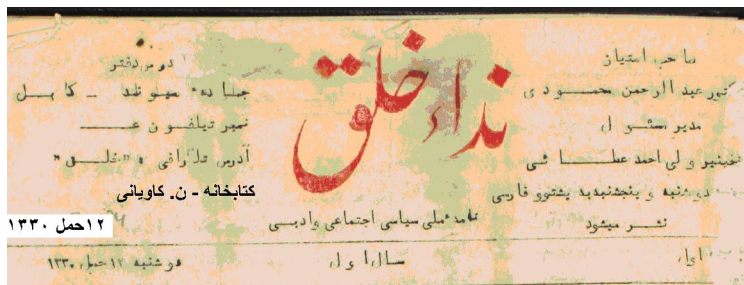 صاحب امتیاز
دکتور عبدالرحمن محمودی
مدیر مسئول
انجنیر ولی احمد عطائی
دوشنبه و پنجشنبه به پشتو و فارسی
نشر میشود
نداء خلق
نامه ملی سیاسی اجتماعی و ادبی
آدرس دفتر
جاده میوند - کابل
نمبر تیلفون
آدرس تلگرافی «خلق»
کتابخانه - ن. کاویانی
۱۲حمل ۱۳۳۰
اول
سال اول
دوشنبه ۱۲ حمل ۱۳۳۰